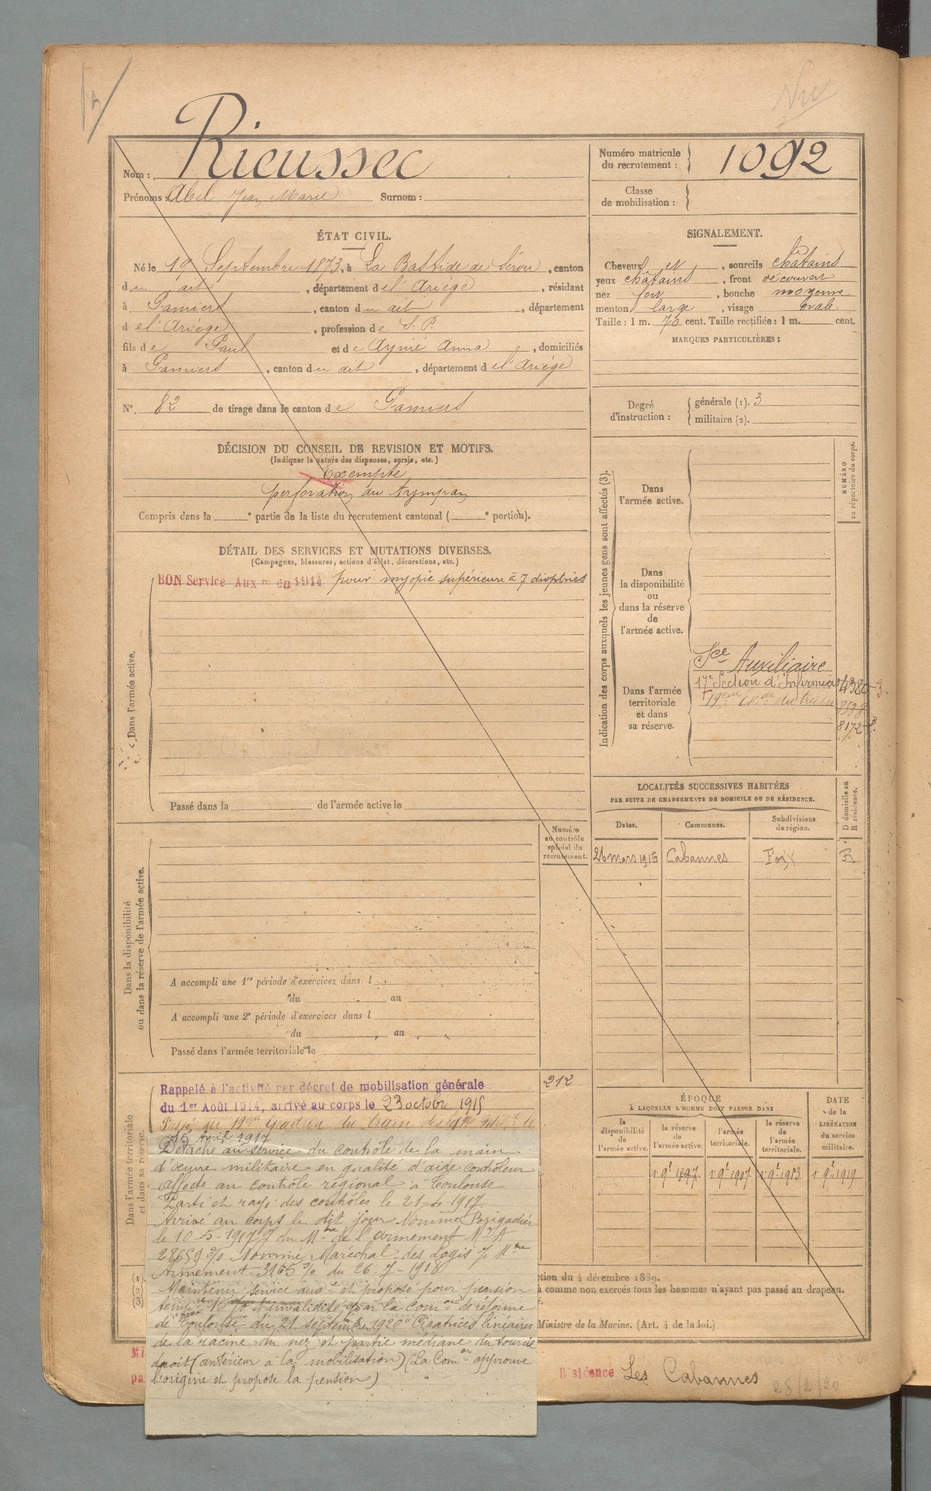 Rieussec
Nom :
Prénoms : Abel Jean Marie Surnom :
Numéro matricule du recrutement : 1092
Classe de mobilisation :
ÉTAT CIVIL.
Né le 19 Septembre 1873, à La Bastide de Sérou, canton
du dit, département de l'Ariège, résidant
à Pamiers, canton du dit, département
de l'Ariège, profession de S.P.
fils de Paul et de Aynié Anna, domiciliés
à Pamiers, canton du dit, département de l'Ariège
N° 82 de tirage dans le canton de Pamiers
SIGNALEMENT.
Cheveux et, sourcils châtains
yeux châtains, front découvert
nez fort, bouche moyenne
menton large, visage ovale
Taille : 1 m. 70 cent. Taille rectifiée : 1 m. cent.
MARQUES PARTICULIÈRES :
Degré d'instruction : générale (1). 3
militaire (2).
DÉCISION DU CONSEIL DE REVISION ET MOTIFS.
(Indiquer la nature des dispenses, sursis, etc.)
Exempté
perforation du tympan
Compris dans la e partie de la liste du recrutement cantonal ( e portion).
DÉTAIL DES SERVICES ET MUTATIONS DIVERSES.
(Campagnes, blessures, actions d'éclat, décorations, etc.)
BON Service Aux re en 1914 pour myopie supérieure à 7 dioptries
Dans l'armée active.
Passé dans la de l'armée active le
Indication des corps auxquels les jeunes gens sont affectés (3).
NUMÉRO au répertoire du corps.
Dans l'armée active.
Dans la disponibilité ou dans la réserve de l'armée active.
Dans l'armée territoriale et dans sa réserve.
Sce Auxiliaire
17e Section d'Infirmiers 4386
8172
LOCALITÉS SUCCESSIVES HABITÉES
PAR SUITE DE CHANGEMENTS DE DOMICILE OU DE RÉSIDENCE.
Dates. Communes. Subdivisions de région. D domicile ou R résidence.
26 mars 1915 Cabannes Foix R
Numéro au contrôle spécial du recrutement.
Dans la disponibilité ou dans la réserve de l'armée active.
A accompli une 1re période d'exercices dans l
du au
A accompli une 2e période d'exercices dans l
du au
Passé dans l'armée territoriale le
Dans l'armée territoriale et dans sa réserve.
212
Rappelé à l'activité par décret de mobilisation générale
du 1er Août 1914, arrivé au corps le 23 octobre 1915
15 avril 1917
Détaché au service du contrôle de la main
d'œuvre militaire en qualité d'aide contrôleur
affecté au contrôle régional à Toulouse
Parti et rayé des contrôles le
Arrivé au corps le dit jour Nommé Brigadier
le 10-5-1917 du Mtre de l'armement
28659 Nommé Maréchal des Logis
Armement 3165 du 26-7-1918
Maintenu service auxre et proposé pour pension
d'invalidité par la Comon de réforme
de Toulouse du 21 septembre 1920 "Cicatrices linéaires
de la racine du nez et partie médiane du sourcil
droit (antérieur à la mobilisation) (La Comon approuve
l'origine et propose la pension)
ÉPOQUE
À LAQUELLE L'HOMME DOIT PASSER DANS
la disponibilité de l'armée active. la réserve de l'armée active. l'armée territoriale. la réserve de l'armée territoriale.
DATE de la LIBÉRATION du service militaire.
1 9e 1897 1 9e 1907 1 9e 1913 1 9e 1919
ction du 4 décembre 1889.
à comme non exercés tous les hommes n'ayant pas passé au drapeau.
Ministre de la Marine. (Art. 4 de la loi.)
Résidence Les Cabannes
28/2/20